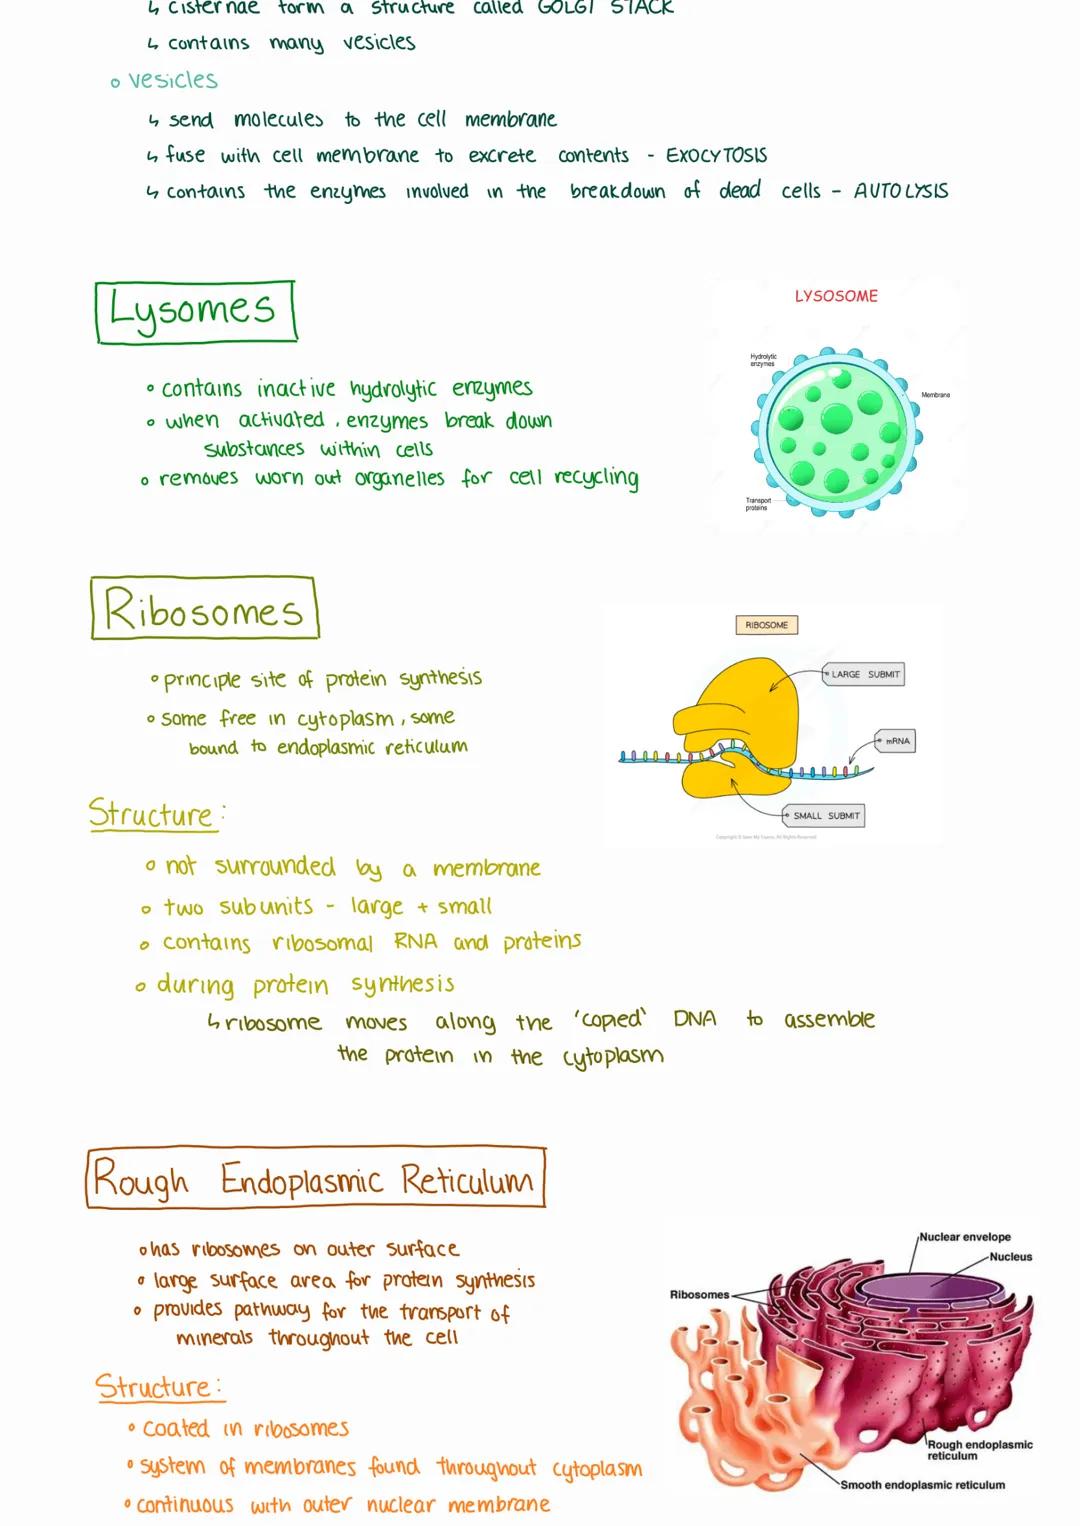 ↳ cisternae form a structure called GOLGI STACK
↳ contains many vesicles
◦ vesicles
↳ send molecules to the cell membrane
↳ fuse with cell membrane to excrete contents - EXOCYTOSIS
↳ contains the enzymes involved in the breakdown of dead cells - AUTOLYSIS
Lysomes
LYSOSOME
Hydrolytic
enzymes
Membrane
Transport
proteins
◦ contains inactive hydrolytic enzymes
◦ when activated, enzymes break down
substances within cells
◦ removes worn out organelles for cell recycling
Ribosomes
RIBOSOME
LARGE SUBMIT
mRNA
SMALL SUBMIT
Copyright © Save My Exams. All Rights Reserved
◦ principle site of protein synthesis
◦ some free in cytoplasm, some
bound to endoplasmic reticulum
Structure:
◦ not surrounded by a membrane
◦ two subunits - large + small
◦ contains ribosomal RNA and proteins
◦ during protein synthesis
↳ ribosome moves along the 'copied' DNA to assemble
the protein in the cytoplasm
Rough Endoplasmic Reticulum
◦ has ribosomes on outer surface
◦ large surface area for protein synthesis
◦ provides pathway for the transport of
minerals throughout the cell
Nuclear envelope
Nucleus
Ribosomes
Rough endoplasmic
reticulum
Smooth endoplasmic reticulum
Structure:
◦ coated in ribosomes
◦ system of membranes found throughout cytoplasm
◦ continuous with outer nuclear membrane